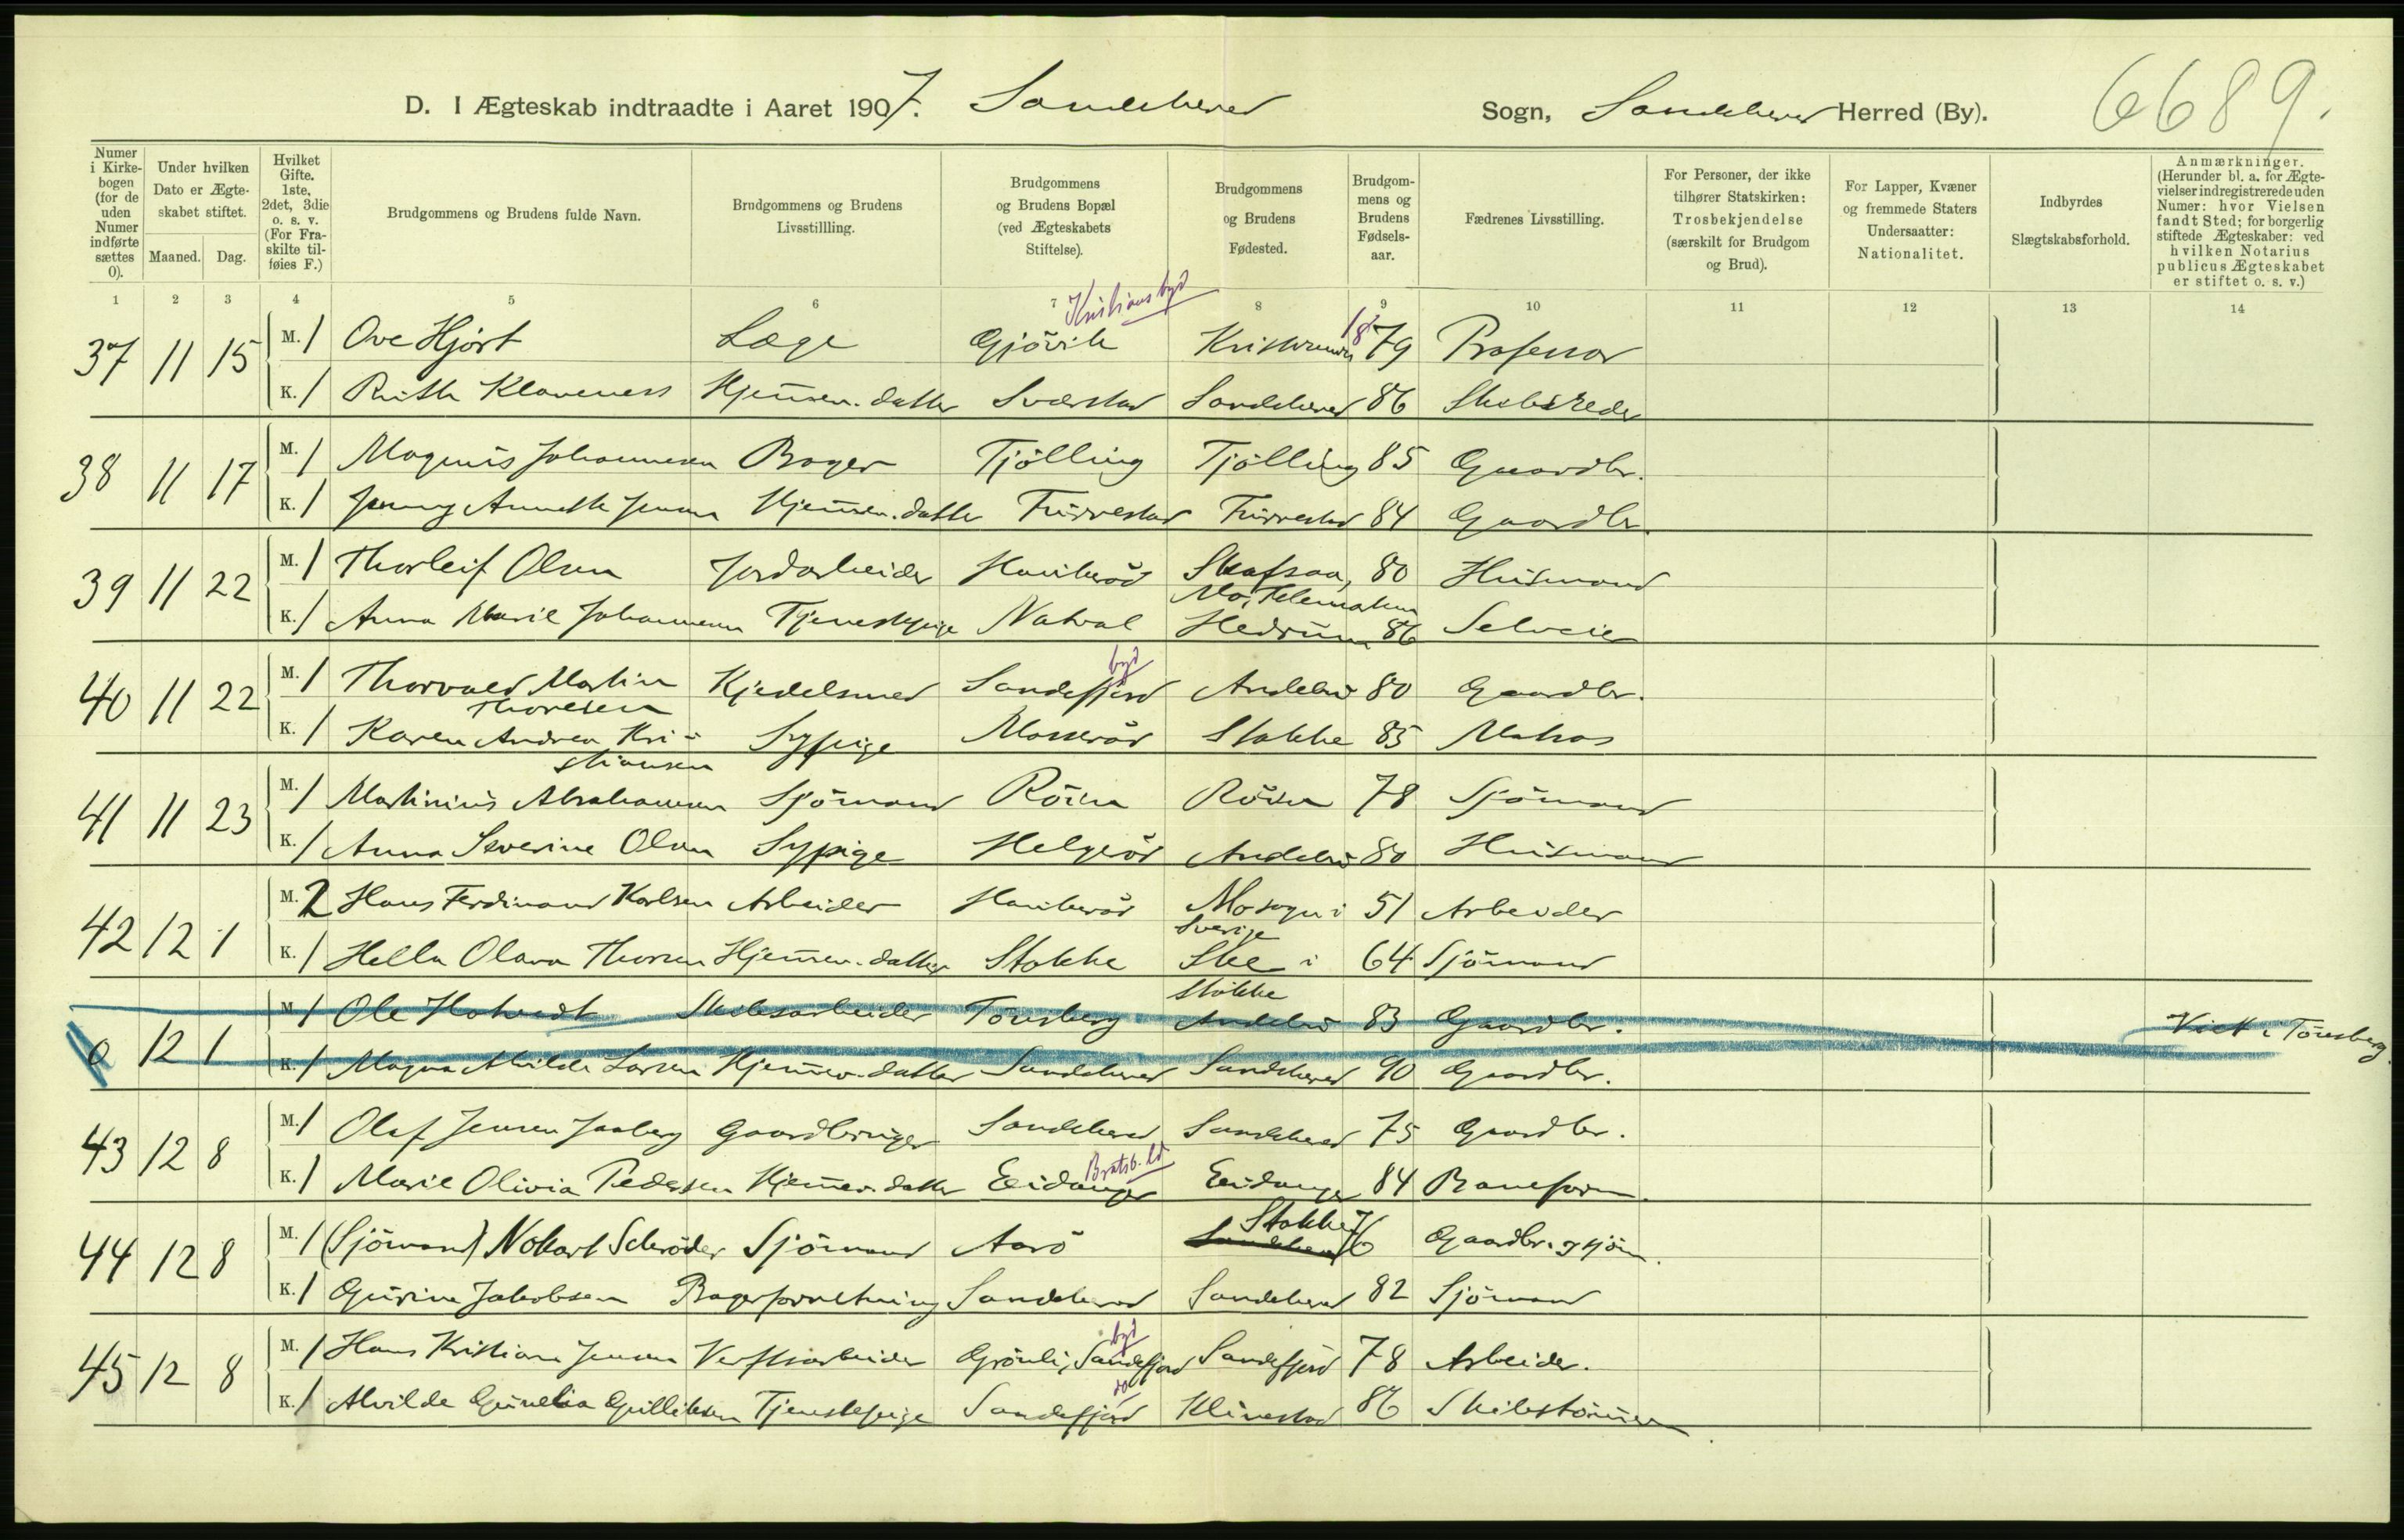 6689.
D. I Ægteskab indtraadte i Aaret 1907. Sandeherred Sogn, Sandeherred Herred (By).
Numer i Kirkebogen (for de uden Numer indførte sættes 0).
Under hvilken Dato er Ægteskabet stiftet.
Maaned. Dag.
Hvilket Gifte. 1ste, 2det, 3die o. s. v. (For Fraskilte tilføies F.)
Brudgommens og Brudens fulde Navn.
Brudgommens og Brudens Livsstillling.
Brudgommens og Brudens Bopæl (ved Ægteskabets Stiftelse).
Brudgommens og Brudens Fødested.
Brudgommens og Brudens Fødselsaar.
Fædrenes Livsstilling.
For Personer, der ikke tilhører Statskirken: Trosbekjendelse (særskilt for Brudgom og Brud).
For Lapper, Kvæner og fremmede Staters Undersaatter: Nationalitet.
Indbyrdes Slægtskabsforhold.
Anmærkninger. (Herunder bl. a. for Ægtevielser indregistrerede uden Numer: hvor Vielsen fandt Sted; for borgerlig stiftede Ægteskaber: ved hvilken Notarius publicus Ægteskabet er stiftet o. s. v.)
1 2 3 4 5 6 7 8 9 10 11 12 13 14
Kristians byd
18
37 11 15 M. 1 Ove Hjort Læge Gjövik 79 Professor
K. 1 Ruth Klaveness Hjemmev. datter Sverstad Sandeherred 86 Skibsreder
38 11 17 M. 1 Magnus Johannesen Bager Tjölling Tjölling 85 Gaardbr.
K. 1 Jenny Annette Jensen Hjemmev. datter Furrestad Furrestad 84 Gaardbr.
39 11 22 M. 1 Thorleif Olsen Jordarbeider Haukeröd Skafsaa, 80 Husmand
Mo, Telemarken
K. 1 Anna Marie Johannesen Tjenestepige Natval Hedrum 86 Selveier
byd
40 11 22 M. 1 Thorvald Martin Kjedelsmed Sandefjord Andebu 80 Gaardbr.
Thoresen
K. 1 Karen Andrea Kri- Sypige Mosseröd Stokke 85 Matros
stiansen
41 11 23 M. 1 Martinius Abrahamsen Sjömand Röine Röine 78 Sjömand
K. 1 Anna Severine Olsen Sypige Helgeröd Andebu 80 Husmand
42 12 1 M. 2 Hans Ferdinand Karlsen Arbeider Haukeröd Mo sogn i 51 Arbeider
Sverige
K. 1 Hella Olava Thorsen Hjemmev. datter Stokke Skee i 64 Sjömand
Stokke
0 12 1 M. 1 Ole Hotvedt Skibsarbeider Tönsberg Andebu 83 Gaardbr. Viet i Tönsberg
K. 1 Magna Milda Larsen Hjemmev. datter Sandeherred Sandeherred 90 Gaardbr.
43 12 8 M. 1 Olaf Jensen Jaaberg Gaardbruger Sandeherred Sandeherred 75 Gaardbr.
Bratsb. Ld
K. 1 Marie Olivia Pedersen Hjemmev. datter Eidanger Eidanger 84 Baneform.
Stokke
44 12 8 M. 1 (Sjömand) Nokart Schröder Sjömand Aarö Sandeherred 76 Gaardbr. og sjöm.
K. 1 Gurine Jakobsen Bagerforretning Sandeherred Sandeherred 82 Sjömand
byd
45 12 8 M. 1 Hans Kristian Jensen Verftsarbeider Grönli, Sandefjord Sandefjord 78 Arbeider.
do
K. 1 Alvilde Gunelia Gulliksen Tjenestepige Sandefjord Klinestad 86 Skibstömmerm